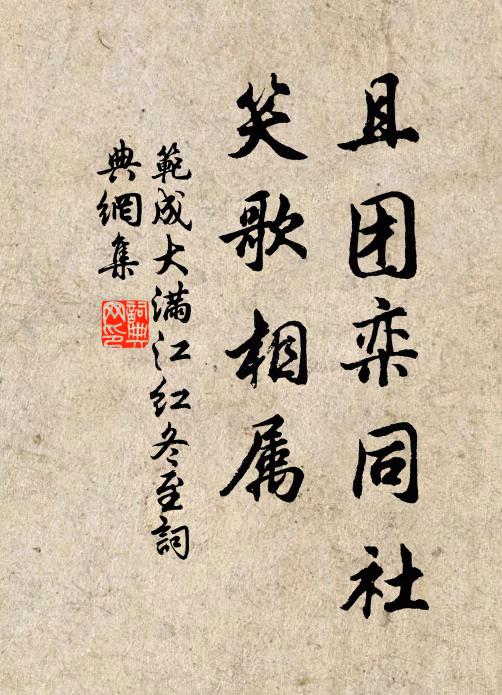 且团栾同社
笑歌相属
範成大满江红冬至詞
典網集
詞典网印